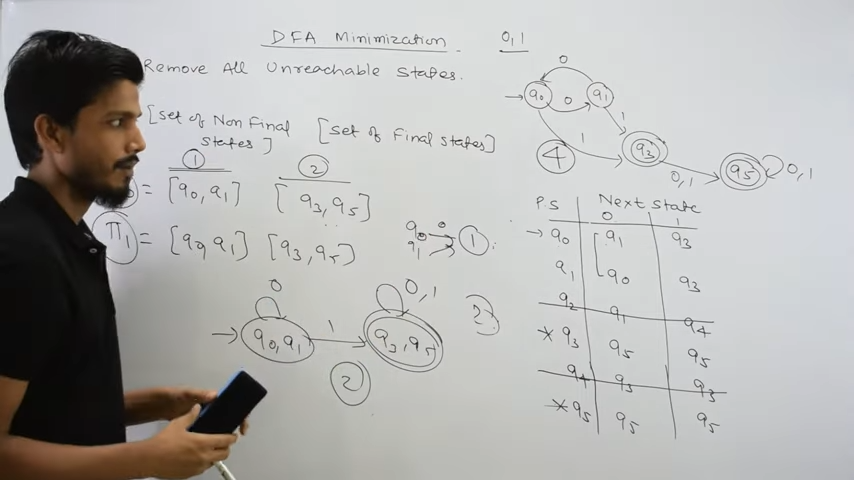 DFA Minimization. 0,1
Remove All Unreachable States.
[Set of Non Final States] [Set of Final States]
① ②
= [q0, q1] [q3, q5]
π1 = [q0, q1] [q3, q5]
q0 0 ①
q1
0 0,1
→ q0,q1 1 q3,q5
②
0
→ q0 0 q1
1 1
④ q3 0,1 q5 0,1
PS Next State
0 1
→ q0 q1 q3
q1 q0 q3
q2 q1 q4
* q3 q5 q5
q4 q3 q3
* q5 q5 q5